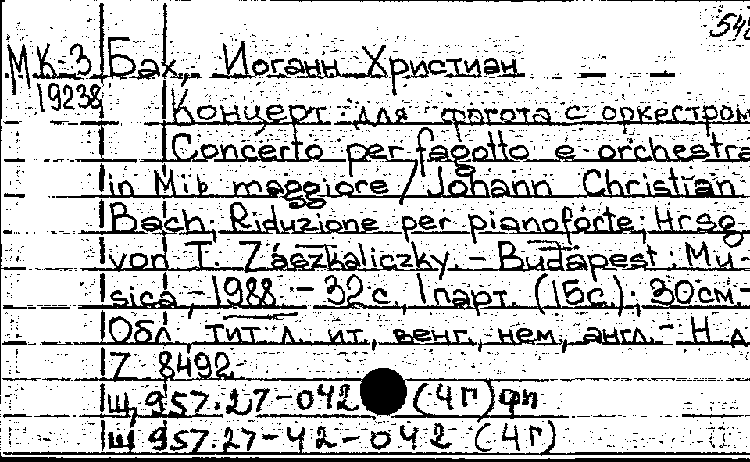 542
МК-3 Бах, Иоганн Христиан
19238
Концерт для фагота с оркестром
Concerto per fagotto e orchestra
in Mib maggiore / Johann Christian
Bach; Riduzione per pianoforte; Hrsg
von T. Zászkaliczky. - Budapest: Mu-
sica, - 1988. - 32 с., 1 парт. (15с.); 30см.-
Обл., тит. л. ит., венг., нем., англ. - Н. д.
Z 8492
Щ 957.27-042 (4Г) фп
Щ 957.27-42-042 (4Г)